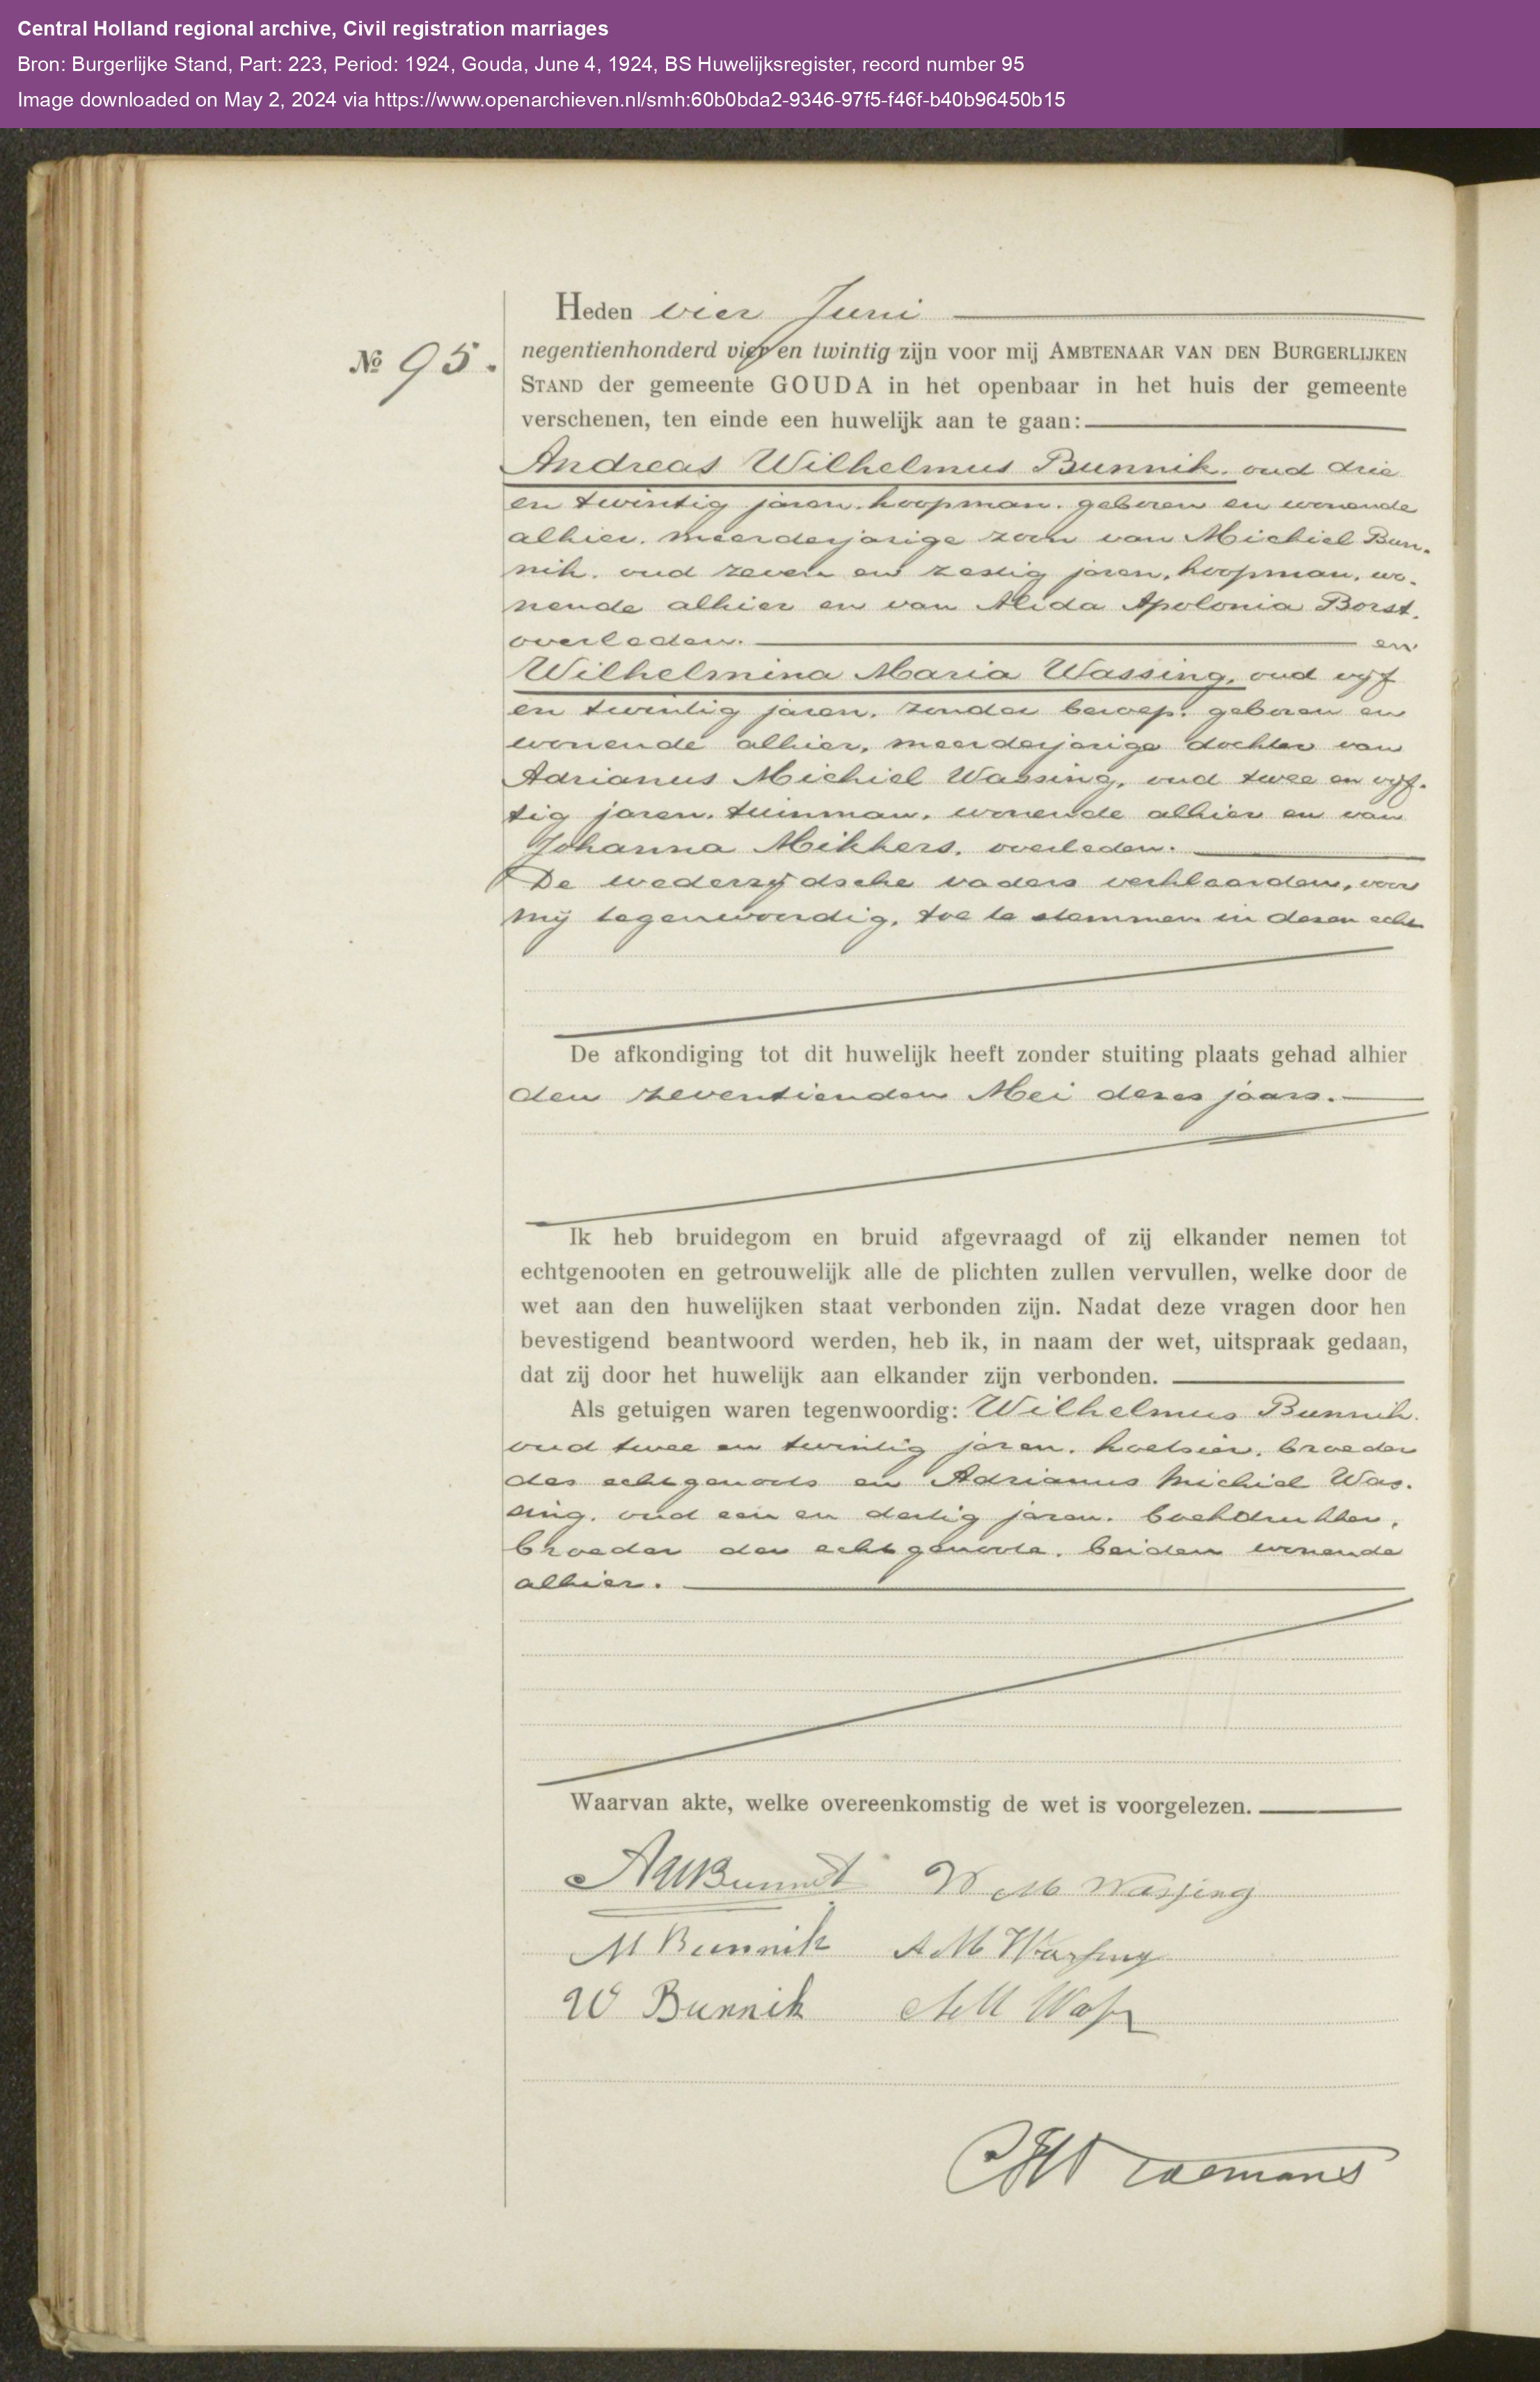 Central Holland regional archive, Civil registration marriages
Bron: Burgerlijke Stand, Part: 223, Period: 1924, Gouda, June 4, 1924, BS Huwelijksregister, record number 95
Image downloaded on May 2, 2024 via https://www.openarchieven.nl/smh:60b0bda2-9346-97f5-f46f-b40b96450b15
Heden vier Juni
№ 95.
negentienhonderd vier en twintig zijn voor mij AMBTENAAR VAN DEN BURGERLIJKEN
STAND der gemeente GOUDA in het openbaar in het huis der gemeente
verschenen, ten einde een huwelijk aan te gaan:
Andreas Wilhelmus Bunnik. oud drie
en twintig jaren. koopman. geboren en wonende
alhier. meerderjarige zoon van Michiel Bun-
nik. oud zeven en zestig jaren, koopman, wo-
nende alhier en van Alida Apolonia Borst.
overleden. en
Wilhelmina Maria Wassing, oud vijf
en twintig jaren. zonder beroep. geboren en
wonende alhier, meerderjarige dochter van
Adrianus Michiel Wassing, oud twee en vijf-
tig jaren. tuinman. wonende alhier en van
Johanna Mikkers. overleden.
De wederzijdsche vaders verklaarden, voor
mij tegenwoordig, toe te stemmen in dezen echt
De afkondiging tot dit huwelijk heeft zonder stuiting plaats gehad alhier
den zeventienden Mei dezes jaars.
Ik heb bruidegom en bruid afgevraagd of zij elkander nemen tot
echtgenooten en getrouwelijk alle de plichten zullen vervullen, welke door de
wet aan den huwelijken staat verbonden zijn. Nadat deze vragen door hen
bevestigend beantwoord werden, heb ik, in naam der wet, uitspraak gedaan,
dat zij door het huwelijk aan elkander zijn verbonden.
Als getuigen waren tegenwoordig: Wilhelmus Bunnik.
oud twee en twintig jaren. koetsier. broeder
des echtgenoots en Adrianus Michiel Was-
sing. oud een en dertig jaren. boekdrukker,
broeder der echtgenoote. beiden wonende
alhier.
Waarvan akte, welke overeenkomstig de wet is voorgelezen.
AWBunnik W M Wassing
M Bunnik A M Wassing
W Bunnik AM